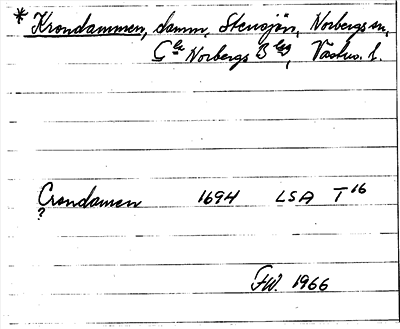 * Krondammen, damm, Stensjön, Norbergs sn,
Gla Norbergs Blag, Västm. l.
Crondamen 1694 LSA T 16
?
F.W. 1966